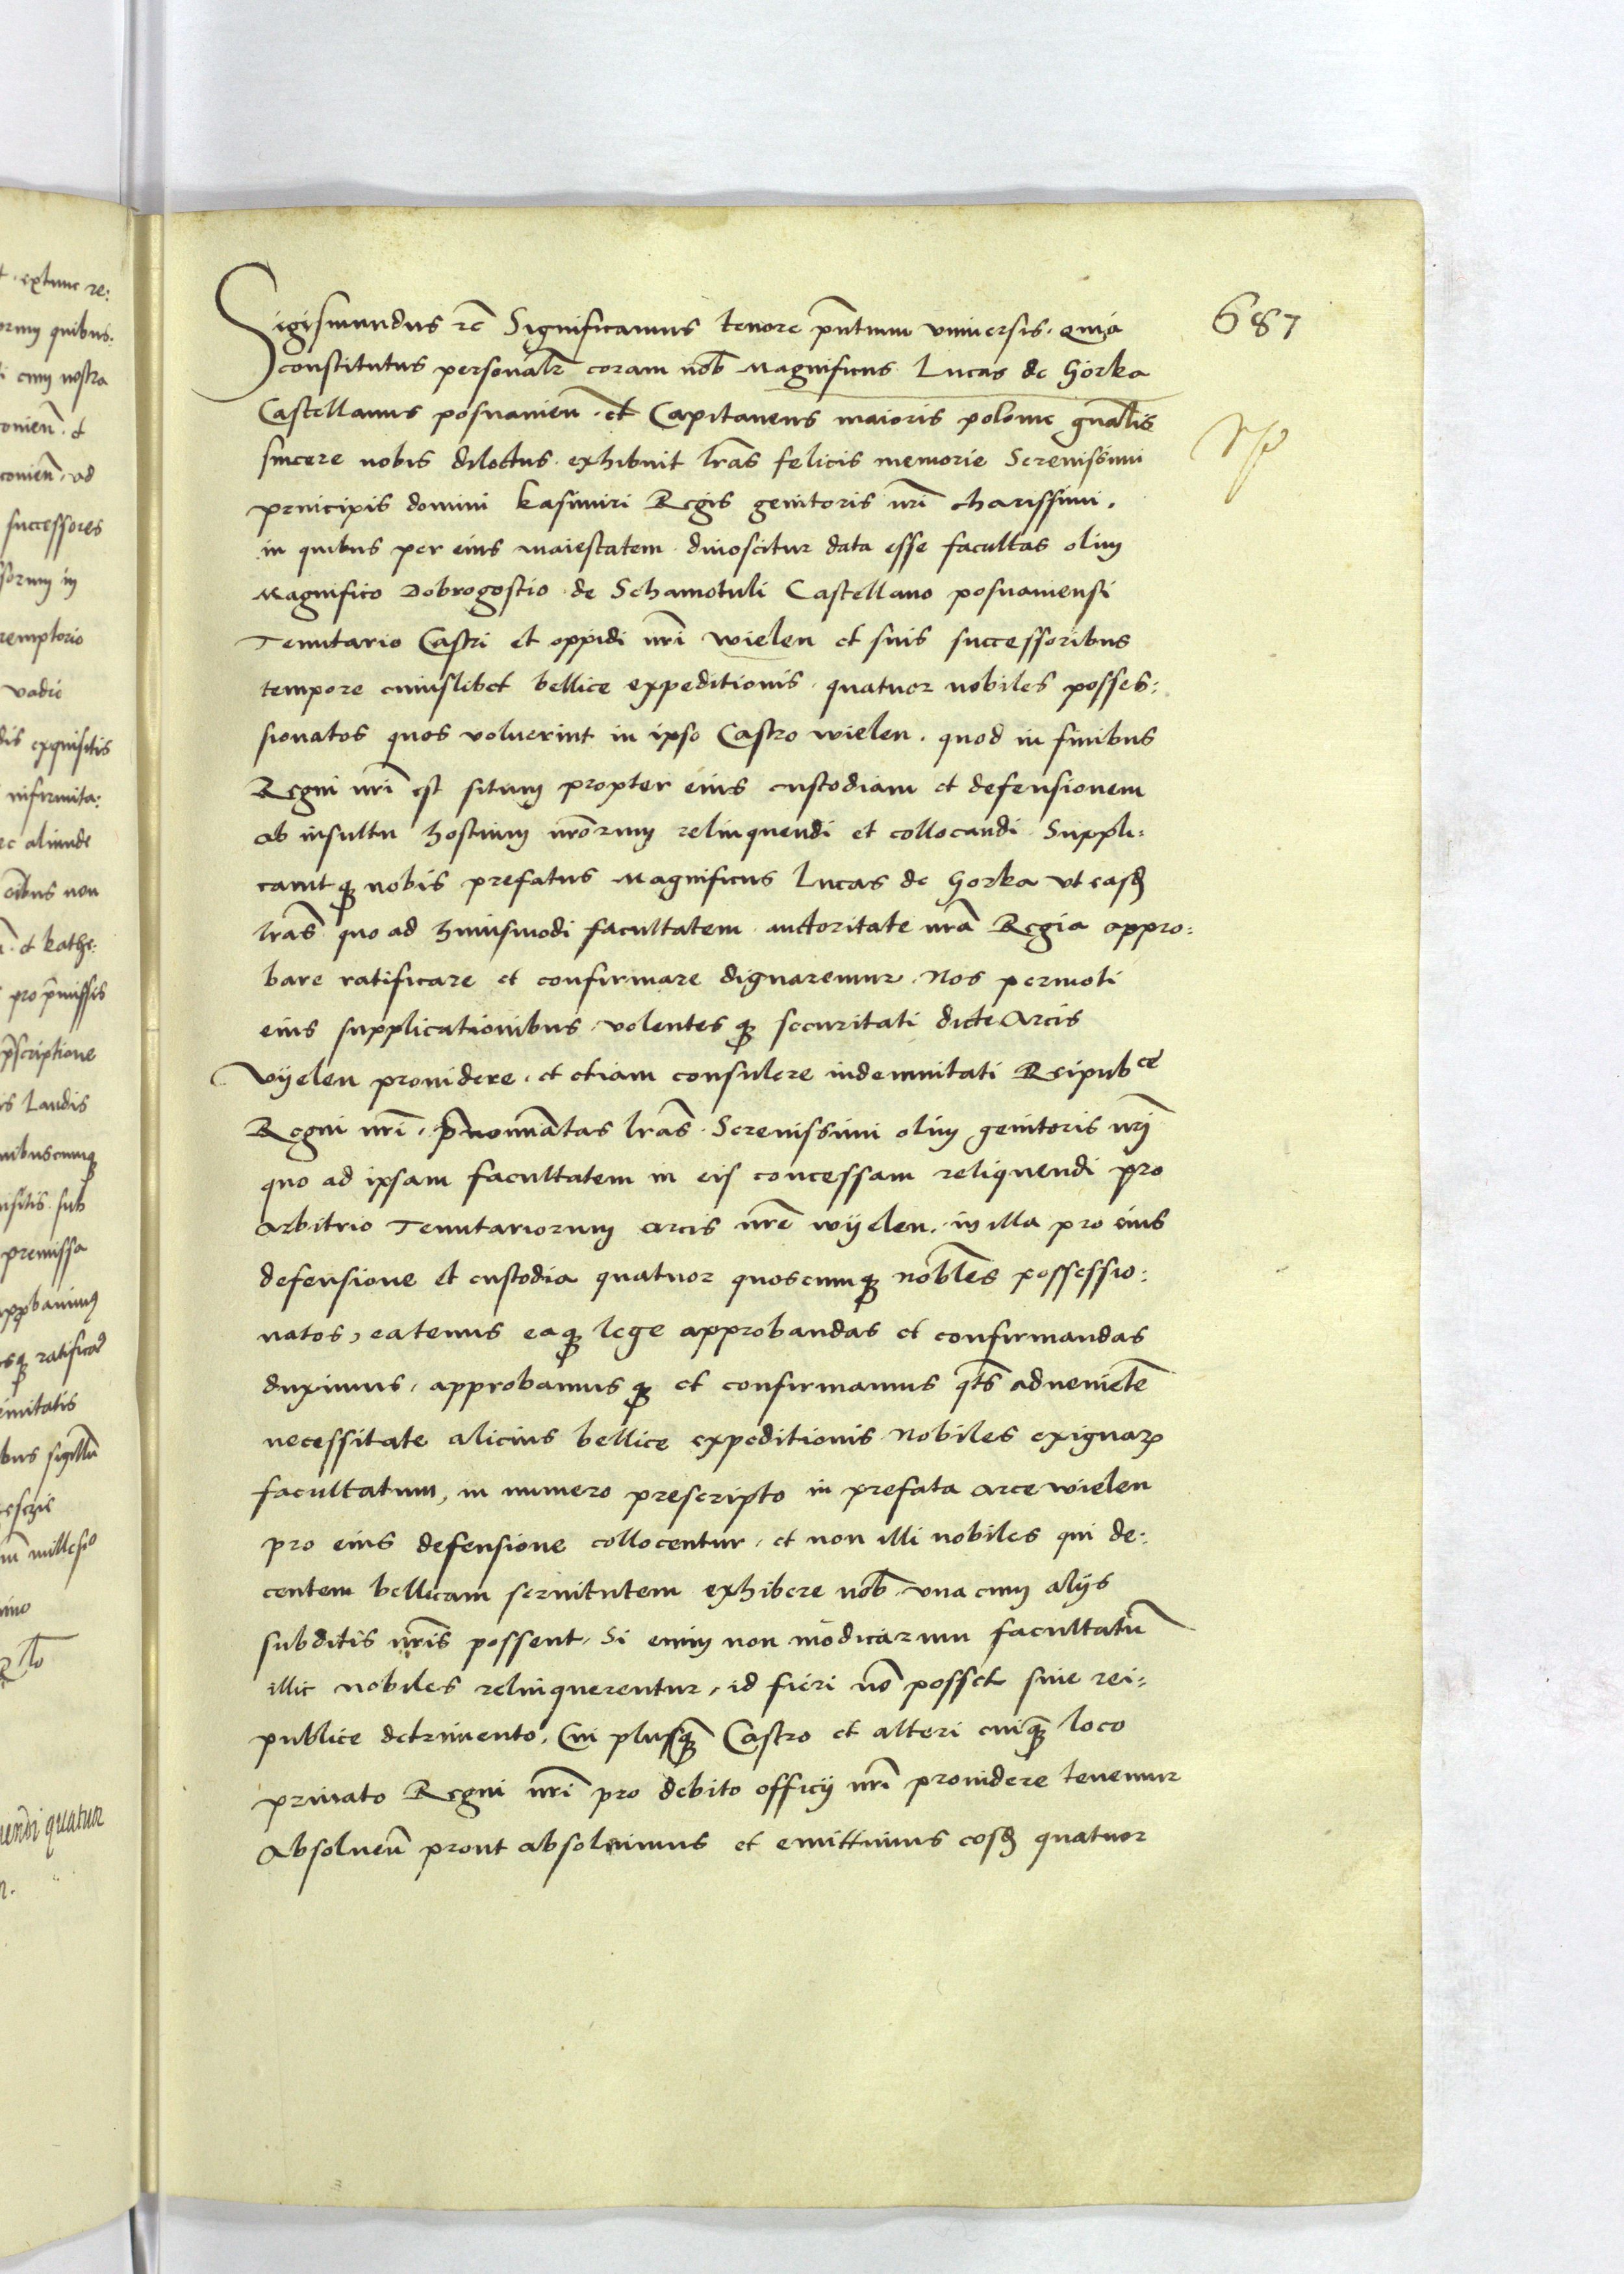 687
Sigismundus rc̄ Significamus tenore p̄ntium vniuersis. quia
constitutus personalr̄ coram nob̄ Magnificus Lucas de Gorka
Castellanus posnanień. et Capitaneus maioris polonie gn̄alis
sincere nobis dilectus exhibuit lr̄as felicis memorie Serenissimi
principis domini kasimiri Regis genitoris nr̄i charissimi.
in quibus per eius maiestatem dinoscitur data esse facultas olim
Magnifico Dobrogostio de Schamotuli Castellano posnaniensi
Tenutario Castri et oppidi nr̄i wielen et suis successoribus
tempore cuiuslibet bellice expeditionis quatuor nobiles posses:
sionatos quos voluerint in ipso Castro wielen. quod in finibus
Regni nr̄i est situm propter eius custodiam et defensionem
ab insultu hostium nr̄orum relinquendi et collocandi Suppli:
cauitqꝫ nobis prefatus Magnificus Lucas de Gorka vt easđ
lr̄as quo ad huiusmodi facultatem auctoritate nr̄a Regia appro:
bare ratificare et confirmare dignaremur. Nos permoti
eius supplicationibus volentesqꝫ securitati dicte Arcis
Vÿelen prouidere. et etiam consulere indemnitati Reipubce
Regni nr̄i. p̄nomīatas lr̄as Serenissimi olim genitoris nr̄i
quo ad ipsam facultatem in eis concessam reliquendi pro
arbitrio Tenutariorum arcis nr̄e wÿelen. in illa pro eius
defensione et custodia quatuor quoscumqꝫ nobl̄es possessio:
natos, eatenus eaqꝫ lege approbandas et confirmandas
duximus, approbamusqꝫ et confirmamus qt̄s adueniēte
necessitate alicuius bellice expeditionis Nobiles exiguaꝝ
facultatum, in numero prescripto in prefata arce wielen
pro eius defensione collocentur. et non illi nobiles qui de:
centem bellicam seruitutem exhibere nob̄ vna cum alijs
subditis nr̄is possent, Si enim non modicarum facultatū
illic nobiles relinquerentur, id fieri nō posset sine rei:
publice detrimento, Cui plusqꝫ Castro et alteri cuiqꝫ loco
priuato Regni nr̄i pro debito officij nr̄i prouidere tenemur
Absoluen̄ prout absoluimus et emittimus eosđ quatuor